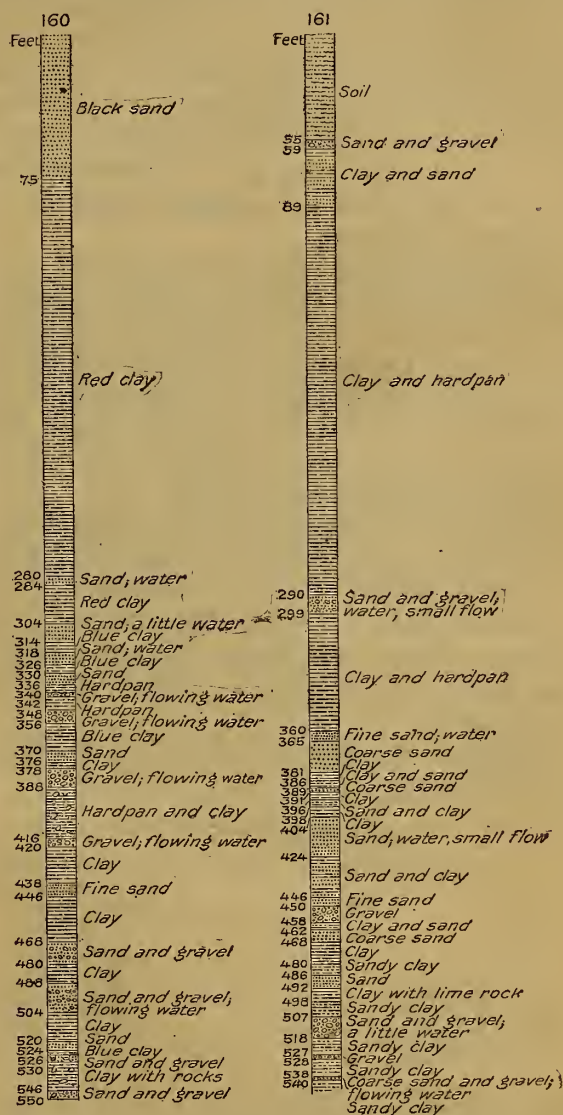 160
Feet
Black sand
75
Red clay
280
Sand; water
284
Red clay
304
Sand; a little water
314
Blue clay
318
Sand; water
326
Blue clay
330
Sand
336
Hardpan
340
Gravel; flowing water
342
Hardpan
348
Gravel; flowing water
356
Blue clay
370
Sand
376
Clay
378
Gravel; flowing water
388
Hardpan and clay
416
Gravel; flowing water
420
Clay
438
Fine sand
446
Clay
468
Sand and gravel
480
Clay
488
Sand and gravel;
flowing water
504
Clay
520
Sand
524
Blue clay
526
Sand and gravel
530
Clay with rocks
546
Sand and gravel
550
161
Feet
Soil
55
Sand and gravel
59
Clay and sand
89
Clay and hardpan
290
Sand and gravel;
water, small flow
299
Clay and hardpan
360
Fine sand; water
365
Coarse sand
Clay
381
Clay and sand
386
Coarse sand
389
Clay
391
396
Sand and clay
398
Clay
404
Sand; water, small flow
424
Sand and clay
446
Fine sand
450
Gravel
458
Clay and sand
462
Coarse sand
468
Clay
480
Sandy clay
486
Sand
492
Clay with lime rock
498
Sandy clay
507
Sand and gravel;
a little water
518
Sandy clay
527
Gravel
528
Sandy clay
538
Coarse sand and gravel;
540
flowing water
Sandy clay